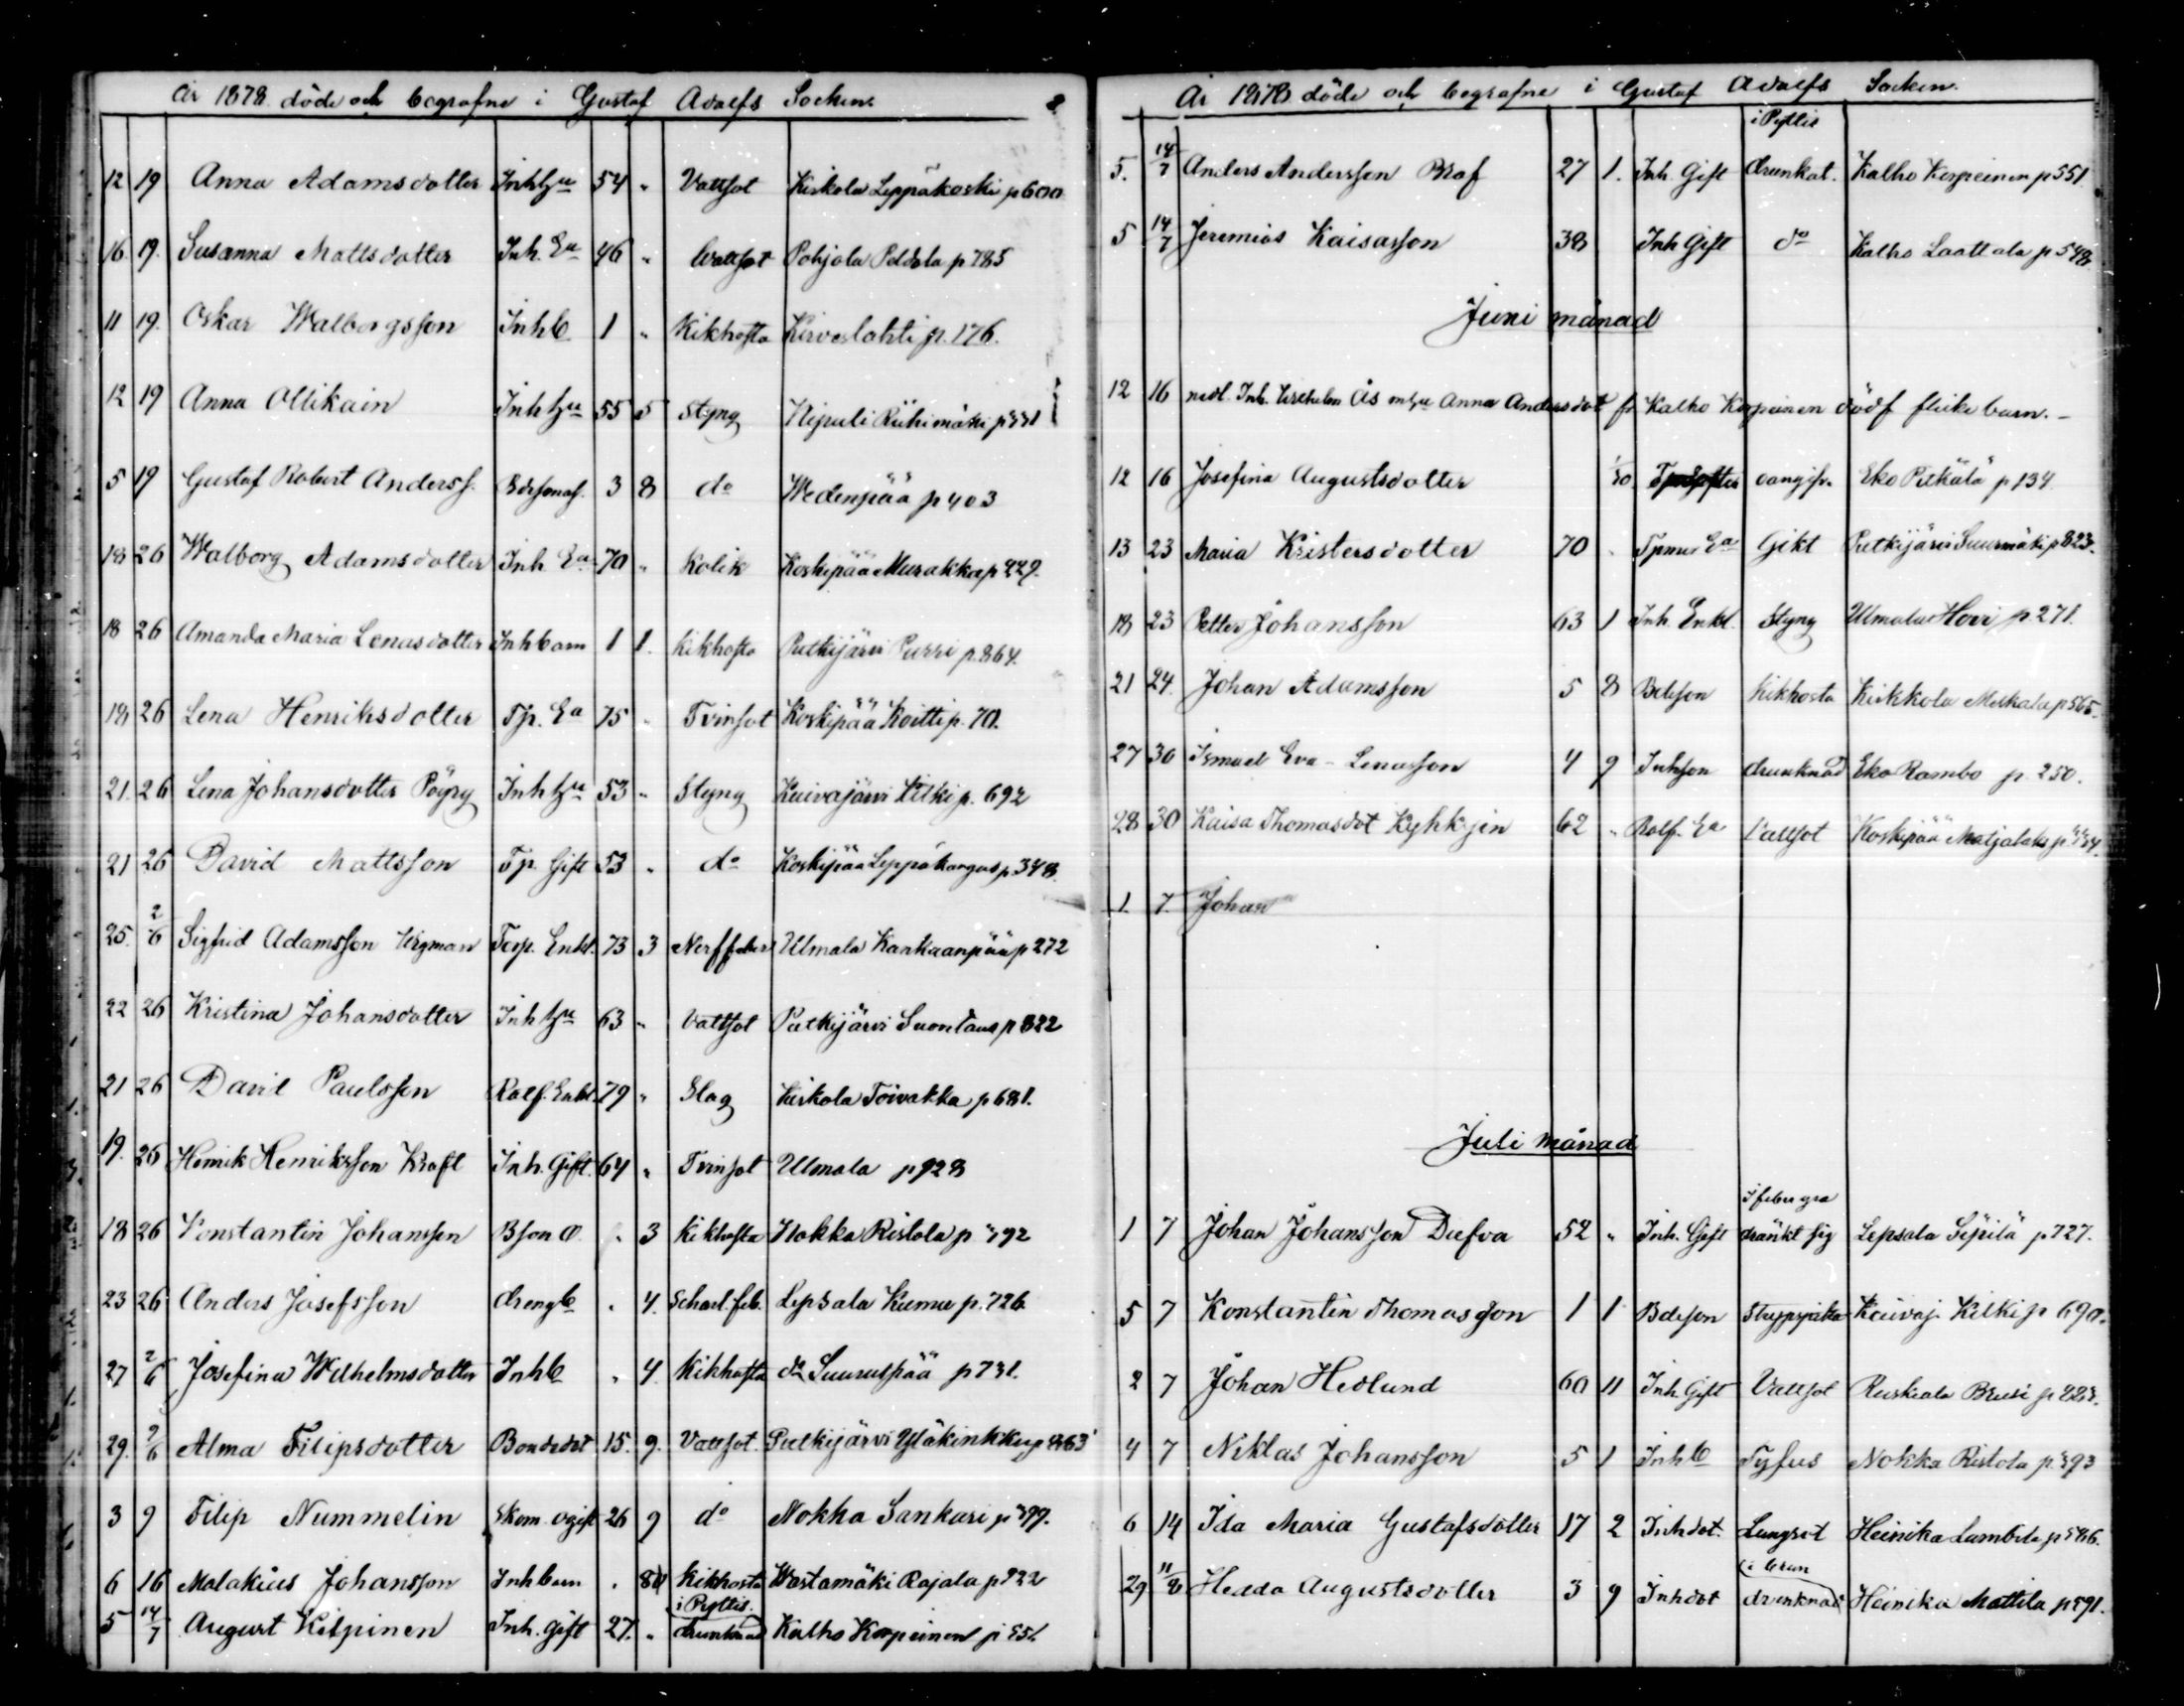 År 1878 döde och begrafne i Gustaf Adolfs Socken.
12 19 Anna Adamsdotter Inhhu 54 " Vattsot Kirkola Leppäkoski p 600
16. 19. Susanna Mattsdotter Inh. Ea 46 " Vattsot Pohjola p 785
11 19. Oskar Walborgsson Inhb 1 " Kikhosta Kirveslahti p. 176.
12 19 Anna Ollikain Inhhu 55 5 Styng Riihimäki
5 19 Gustaf Robert Anderss. 3 8 do Wedenpää p 403
18 26 Walborg Adamsdotter Inh Ea 70 " Kolik Koskipää Murakka p 229.
18 26 Amanda Maria Lenasdotter Inhbarn 1 1. Kikhosta Putkijärvi Purri p. 864.
18 26 Lena Henriksdotter Tp. Ea 75 " Tvinsot Koskipää Koitti p. 70.
21. 26 Lena Johansdotter Pöyry Inhhu 53 " Styng Kuivajärvi Kilki p. 692
21 26 David Mattsson Tp. Gift 53 " do Koskipää Leppäkangas p 348.
25. 2/6 Sigfrid Adamsson Torp. Enkl. 73 3 Nerffeber Ulmala Kankaanpää p 272
22 26 Kristina Johansdotter Inhhu 63 " Vattsot Putkijärvi Suontaus p 822
21 26 David Paulsson Enkl. 79 " Slag Kirkola Toivakka p 681.
19. 26 Henrik Henriksson Kraft Inh. Gift. 64 " Tvinsot Ulmala p 928
18 26 Konstantin Johansson Bson " 3 Kikhosta Nokka Ristola p 392
23 26 Anders Josefsson drengb " 4. Scharl. feb. Lepsala Kumu p. 726
27 2/6 Josefina Wilhelmsdotter Inhb " 4 Kikhosta do Suurulpää p 731.
29. 2/6 Alma Filipsdotter Bondedot 15. 9. Vattsot. Putkijärvi Yläkinkku
3 9 Filip Nummelin Skom. ogift 26 9 do Nokka Sankari p 399.
6 16 Malakius Johansson Inhbarn " Kikhosta Wastamäki Rajala p 922
i Pyttis.
5 14/7 August Kilpinen Inh. gift 27. " drunknad Kalho Korpeinen p 551.
År 1878 döde och begrafne i Gustaf Adolfs Socken.
i Pyttis
5. 14/7 Anders Andersson Braf 27 1. Inh. Gift drunkat. Kalho Korpeinen p 551.
5 14/7 Jeremias Kaisasson 38 Inh Gift do Kalho Laattala p 548.
Juni månad
12 16 Inh. Wilhelm Ås m hu Anna Andersdot fr Kalho Korpeinen dödf flickebarn. –
12 16 Josefina Augustsdotter 1/30 oangifv. Eko Pitkälä p 134.
13 23 Maria Kristersdotter 70 " Ea Gikt Putkijärvi Suurmäki p 823.
18 23 Petter Johansson 63 1 Inh. Enkl. Styng Ulmala Hovi p 271.
21 24. Johan Adamsson 5 8 Bdeson Kikhosta Kirkkola p 565.
27 30 Ismael Eva-Lenasson 4 9 Inhson drunknad Eko Rambo p. 250.
28 30 Kaisa Thomasdot 62 " Ea Vattsot Koskipää
1. 7. Johan
Juli månad
1 7 Johan Johansson Dufva 52 " Inh. Gift dränkt sig Lepsala Sipilä p 727.
5 7 Konstantin Thomasson 1 1 Bdeson Strypsjuka Kuivaj. Kilki p 690.
2 7 Johan Hedlund 60 11 Inh. Gift Vattsot Ruskiala Brusi
4 7 Niklas Johansson 5 1 Inhb Tyfus Nokka Ristola p. 393
6 14 Ida Maria Gustafsdotter 17 2 Inhdot. Lungsot Heinika Lambila p 586.
i brun
29 11/8 Hedda Augustsdotter 3 9 Inhdot drunknad Heinika Mattila p 591.